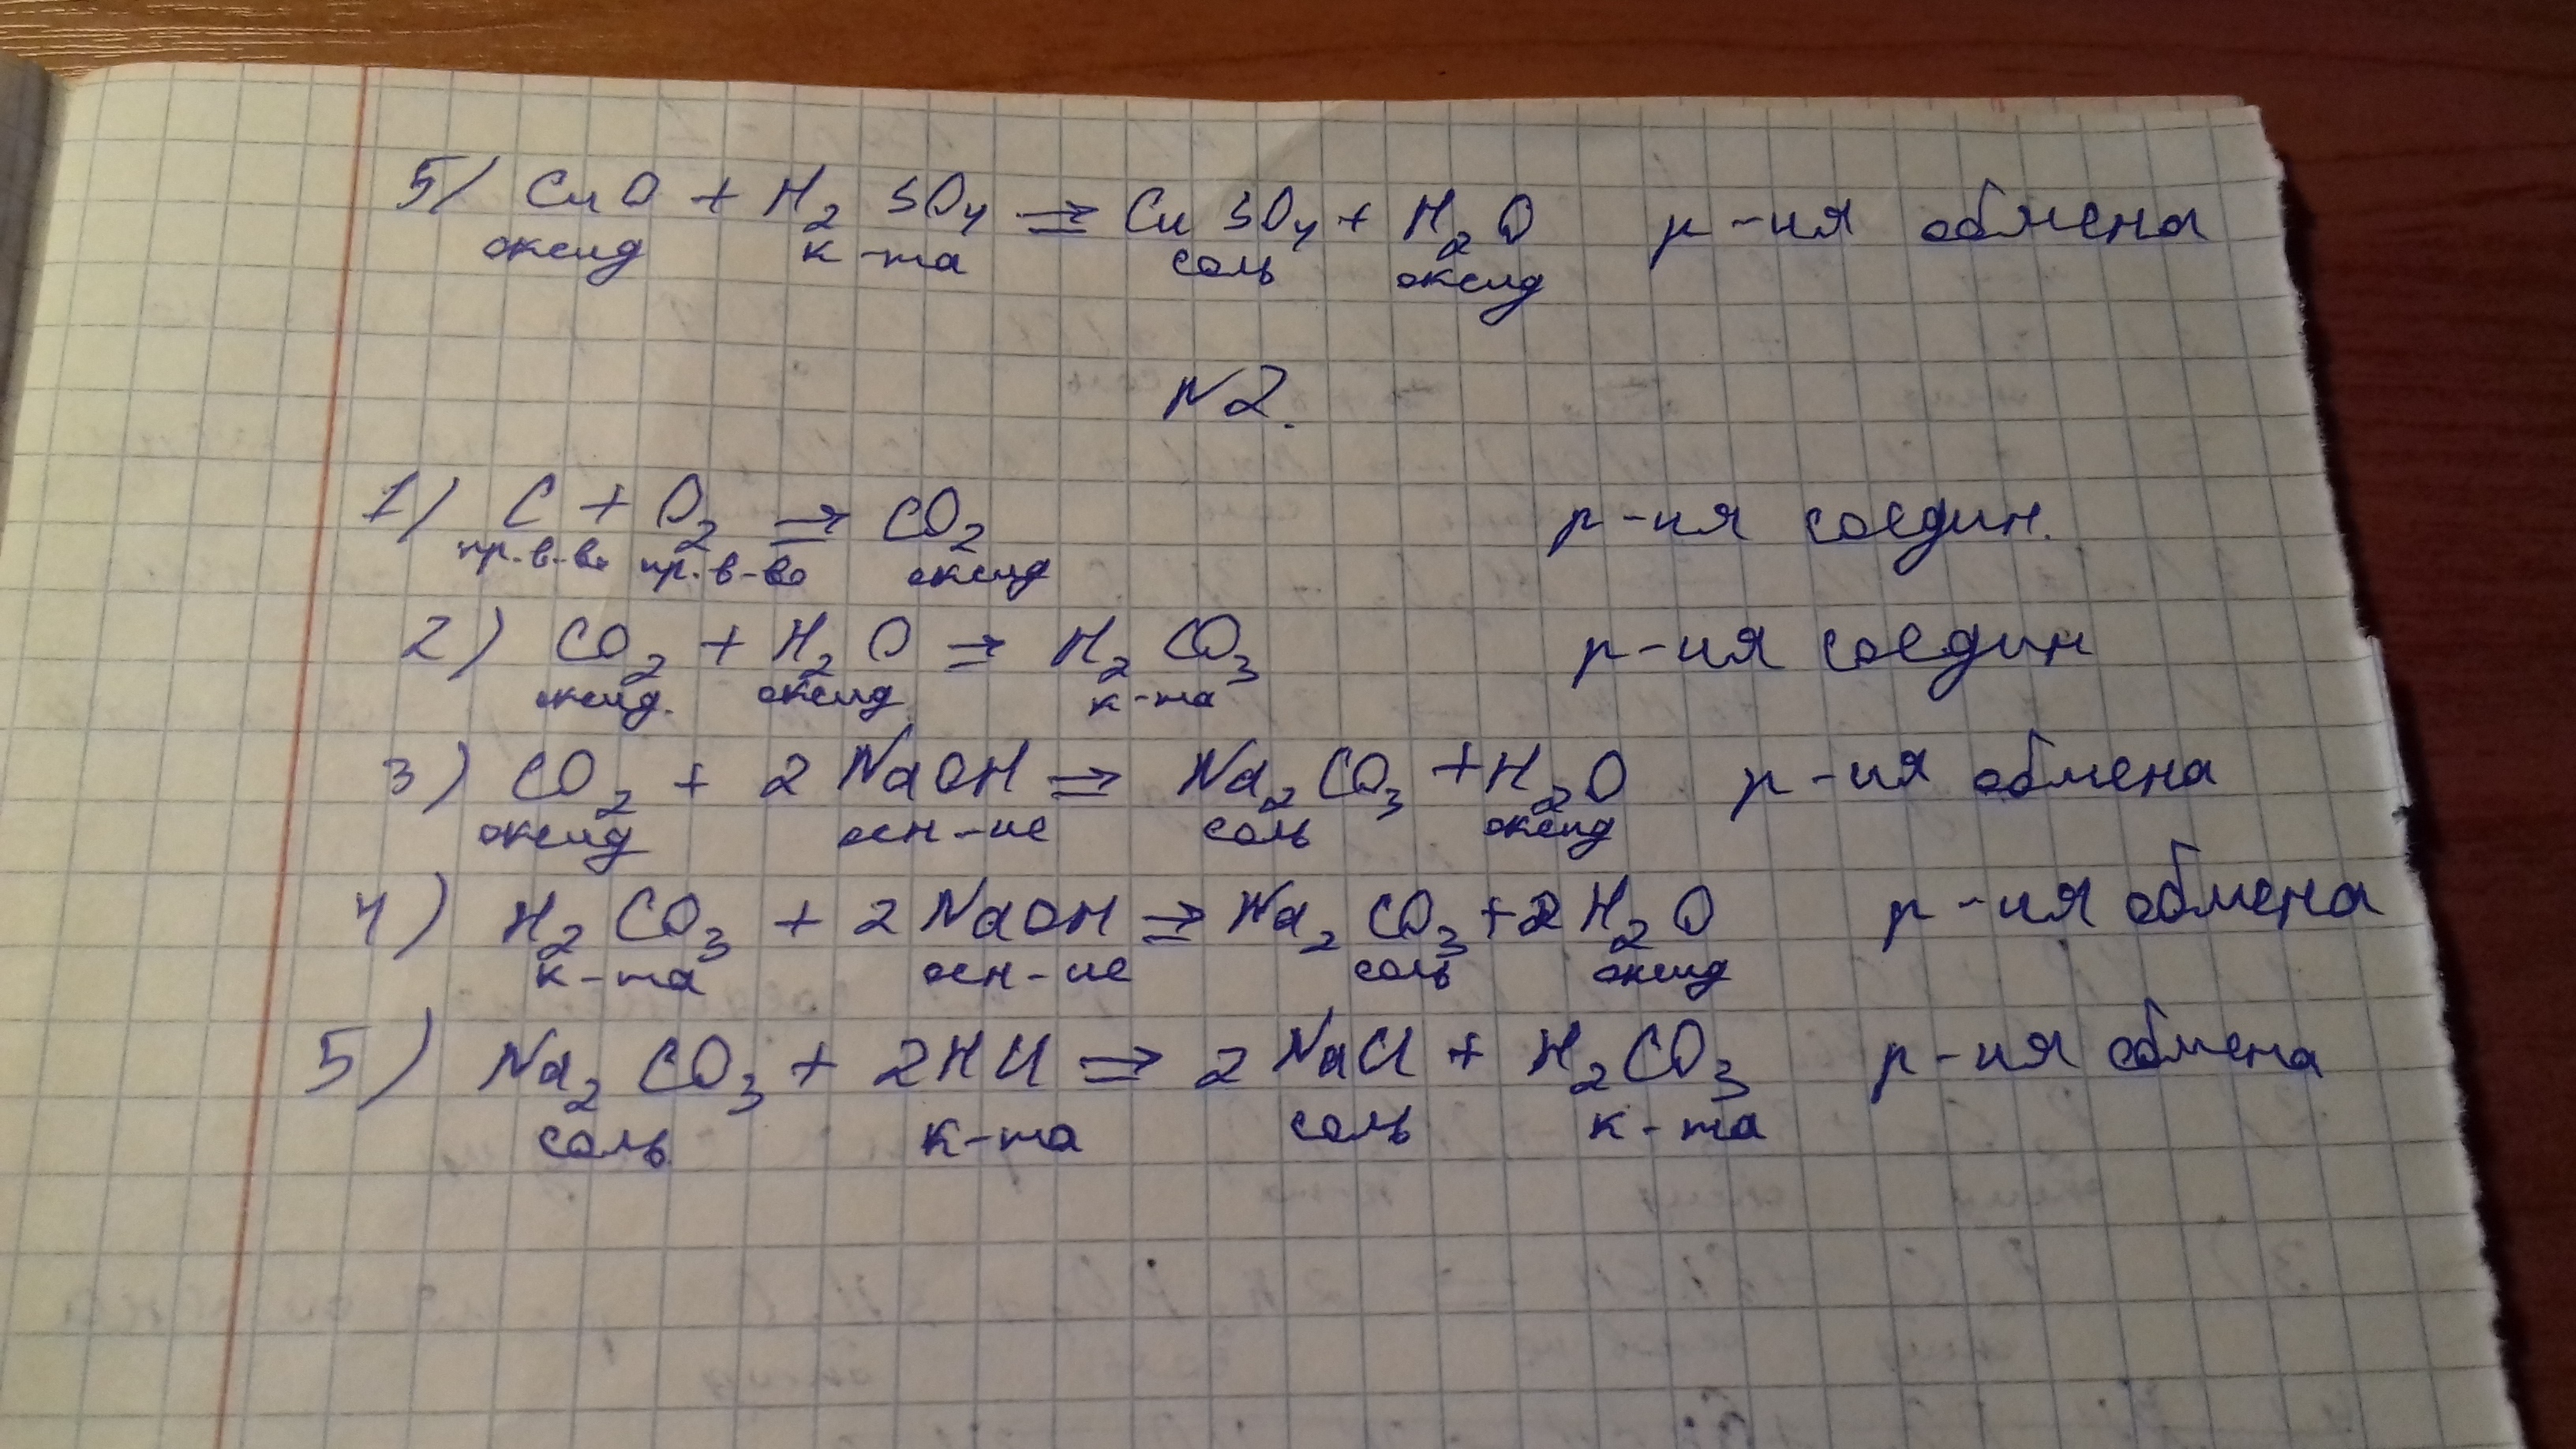 5) CuO + H2SO4 => CuSO4 + H2O р-ия обмена
оксид к-та соль оксид
N2.
1) C + O2 => CO2 р-ия соедин.
пр. в-во пр. в-во оксид
2) CO2 + H2O => H2CO3 р-ия соедин
оксид. оксид к-та
3) CO2 + 2NaOH => Na2CO3 + H2O р-ия обмена
оксид осн-ие соль оксид
4) H2CO3 + 2NaOH => Na2CO3 + 2H2O р-ия обмена
к-та осн-ие соль оксид
5) Na2CO3 + 2HCl => 2NaCl + H2CO3 р-ия обмена
соль к-та соль к-та